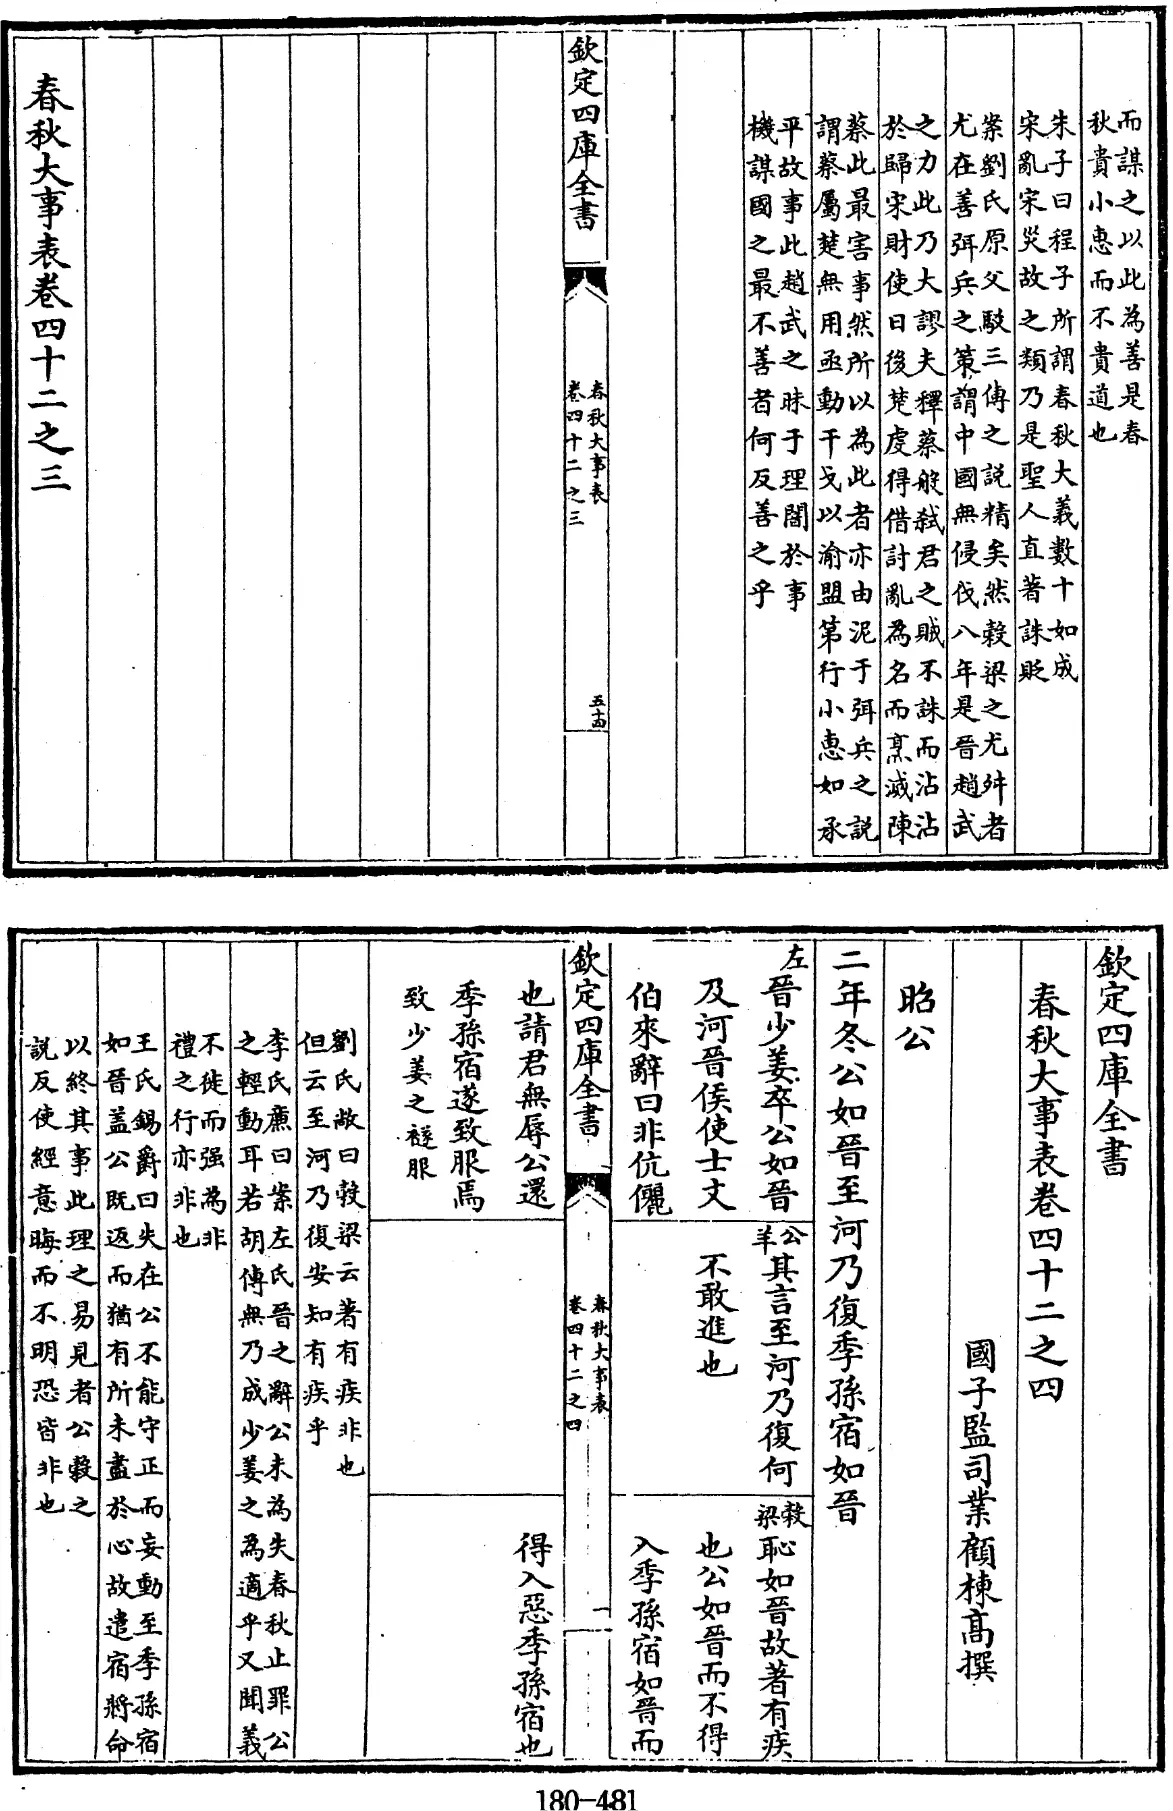 而謀之以此為善是春
秋貴小惠而不貴道也
朱子曰程子所謂春秋大義數十如成
宋亂宋災故之類乃是聖人直著誅貶
案劉氏原父駁三傳之說精矣然穀梁之尤舛者
尤在善弭兵之策謂中國無侵伐八年是晉趙武
之力此乃大謬夫釋蔡般弑君之賊不誅而沾沾
於歸宋財使日後楚虔得借討亂為名而烹滅陳
蔡此最害事然所以為此者亦由泥于弭兵之說
謂蔡屬楚無用亟動干戈以渝盟第行小惠如承
平故事此趙武之昧于理闇於事
機謀國之最不善者何反善之乎
欽定四庫全書
春秋大事表
卷四十二之三
五十四
春秋大事表卷四十二之三
欽定四庫全書
春秋大事表卷四十二之四
國子監司業顧棟高撰
昭公
二年冬公如晉至河乃復季孫宿如晉
左
晉少姜卒公如晉
及河晉侯使士文
伯來辭曰非伉儷
也請君無辱公還
季孫宿遂致服焉
致少姜之襚服
公羊
其言至河乃復何
不敢進也
穀梁
恥如晉故著有疾
也公如晉而不得
入季孫宿如晉而
得入惡季孫宿也
劉氏敞曰穀梁云著有疾非也
但云至河乃復安知有疾乎
李氏廉曰案左氏晉之辭公未為失春秋止罪公
之輕動耳若胡傳無乃成少姜之為適乎又聞義
不徙而强為非
禮之行亦非也
王氏錫爵曰失在公不能守正而妄動至季孫宿
如晉盖公既返而猶有所未盡於心故遣宿將命
以終其事此理之易見者公穀之
說反使經意晦而不明恐皆非也
欽定四庫全書
春秋大事表
卷四十二之四
一
180-481